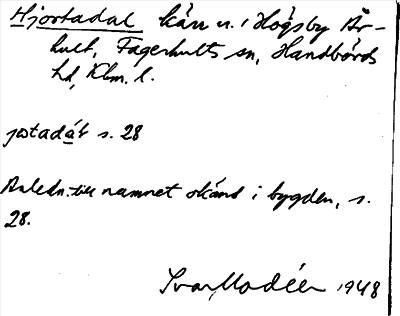 Hjortadal kärr n. i Högsby År-
hult, Fagerhults sn, Handbörds
hd, Klm. l.
jotadál s. 28
Anledn. till namnet okänd i bygden, s.
28.
Ivar Modéer 1948